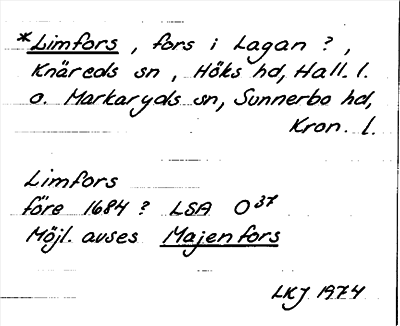 *Limfors, fors i Lagan?,
Knäreds sn, Höks hd, Hall. l.
o. Markaryds sn, Sunnerbo hd,
Kron. l.
Limfors
före 1684? LSA O37
Möjl. avses Majenfors
LKJ 1974